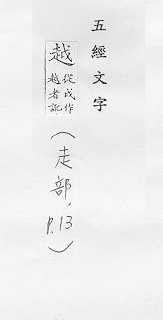 五經文字
越
從戉作
越者訛
(走部, p.13)